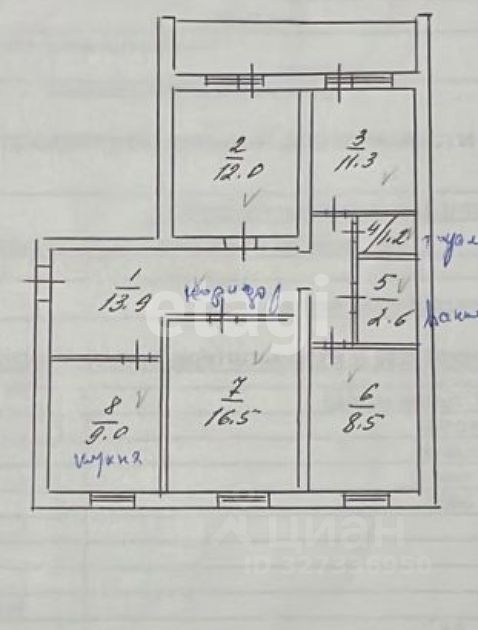 2
12.0
3
11.3
4/1.2
туал
1
13.9
коридор
etagi
5
2.6
ванн
7
16.5
6
8.5
8
9.0
кухня
циан
ID 327336950